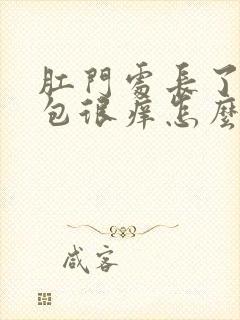 肛門處長了
包很痒怎麼
咸客